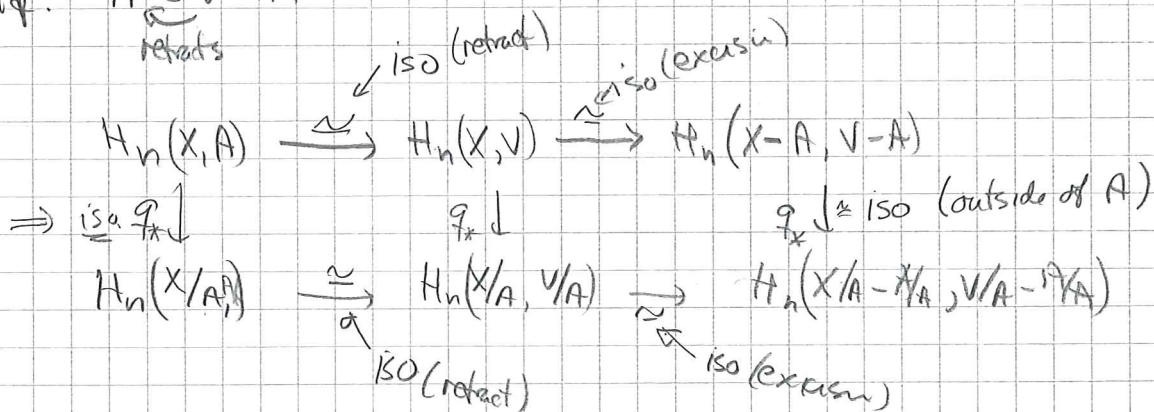 retracts
iso (retract)
iso (excisn)
H_n(X,A) ≃→ H_n(X,V) ≃→ H_n(X-A, V-A)
⇒ iso q_*↓ q_*↓ q_*↓ ≃ iso (outside of A)
H_n(X/A, ) ≃→ H_n(X/A, V/A) →≃ H_n(X/A - A/A, V/A - A/A)
iso (retract)
iso (excisn)